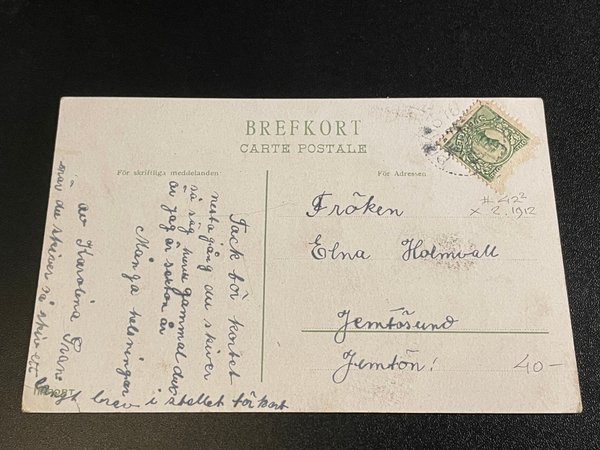 BREFKORT
CARTE POSTALE
För skriftliga meddelanden
För Adressen
Tack för kortet
nesta gång du skriver
så säg huru gammal du
är jag är sexton år
Många helsningar
av Karolina
når du skriver så skriv ett
langt brev i stellet för kort
Fröken
Elna Holmvall
Jemtösund
Jemtön!
# 42²
x 2.1912
40-